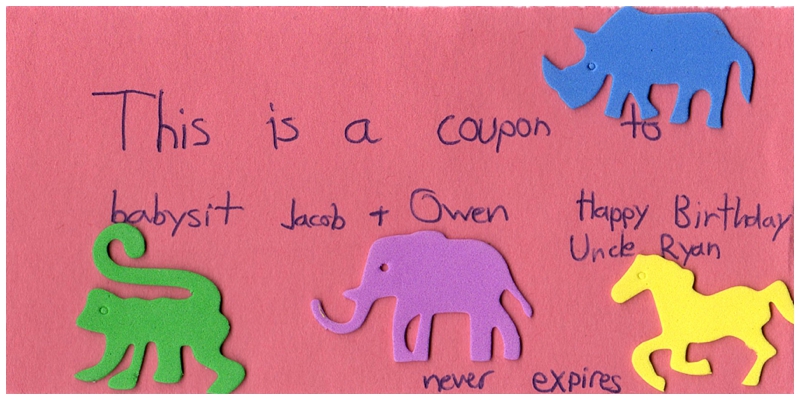 This is a coupon to
babysit Jacob + Owen
Happy Birthday
Uncle Ryan
never expires